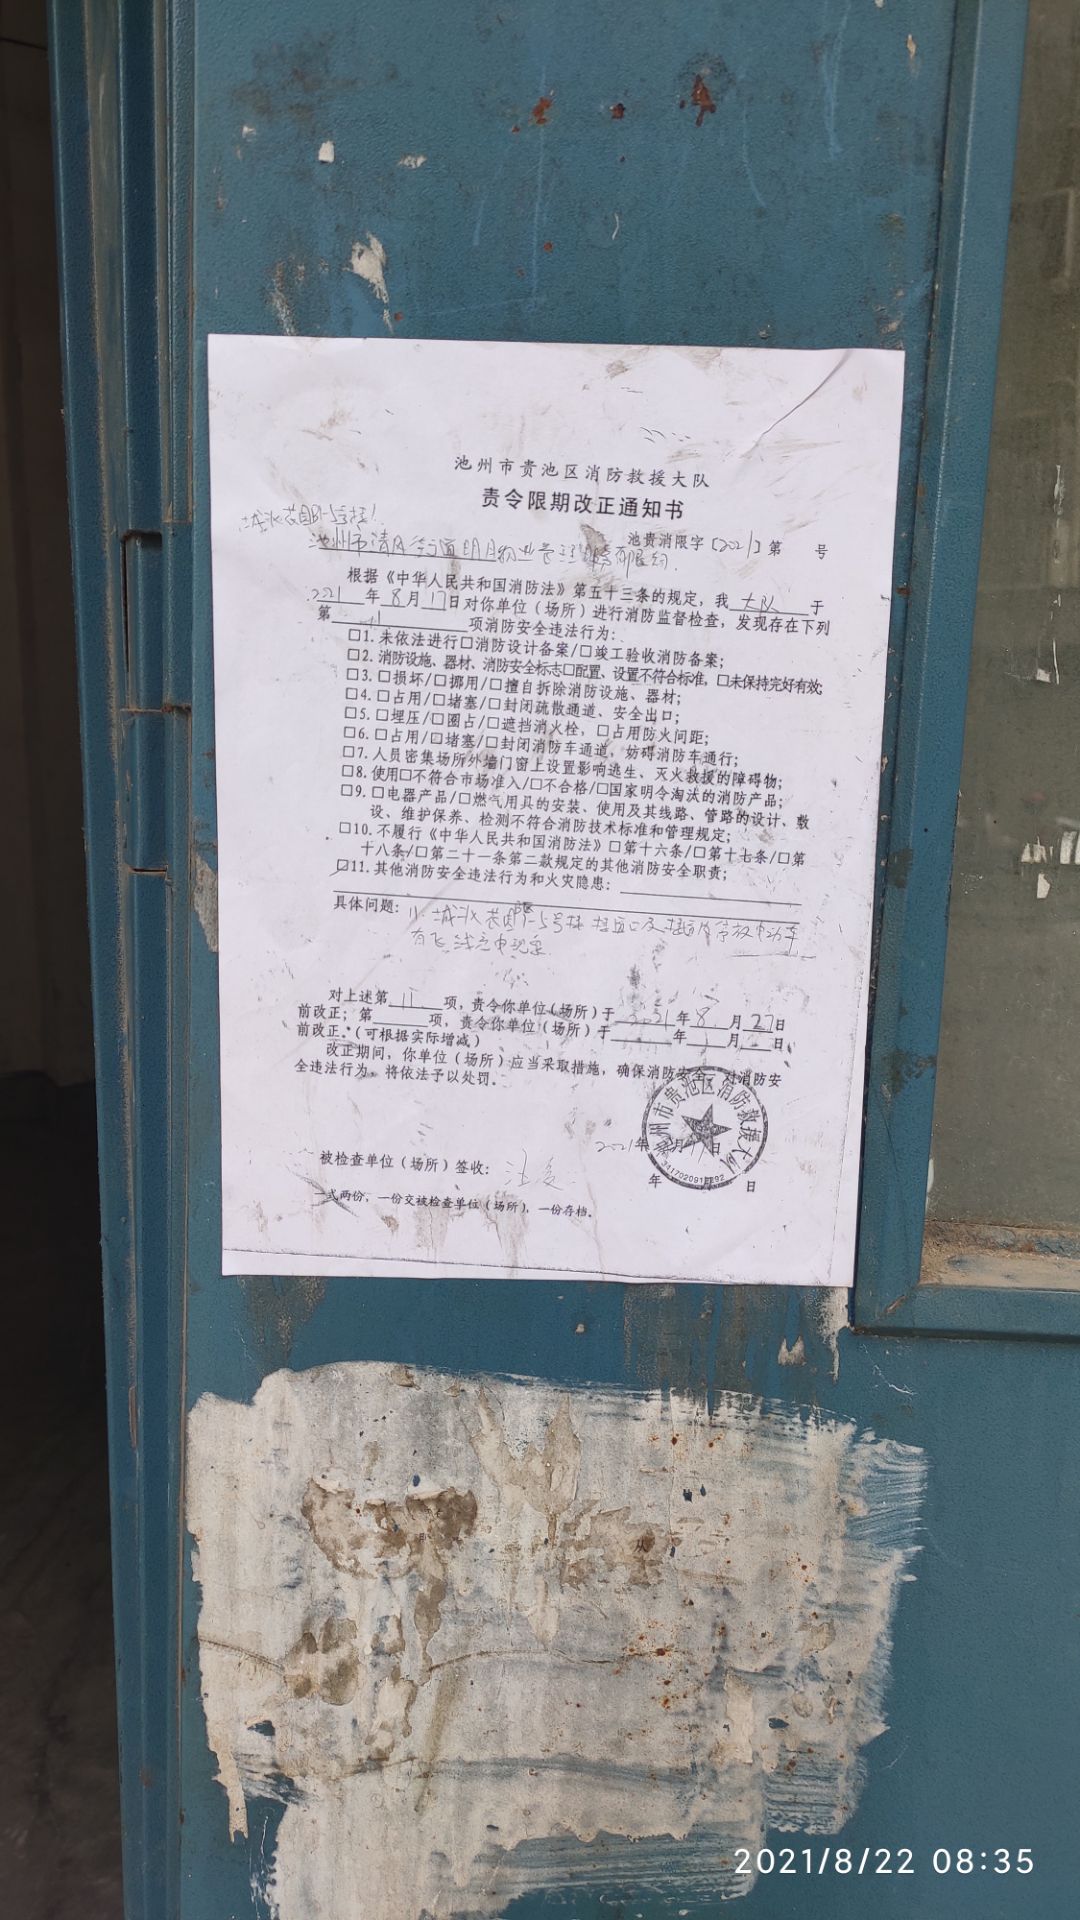 池州市贵池区消防救援大队
责令限期改正通知书
池贵消限字〔2021〕第 号
根据《中华人民共和国消防法》第五十三条的规定，我 大队 于
2021 年 8 月 17 日对你单位（场所）进行消防监督检查，发现存在下列
第 11 项消防安全违法行为：
□1. 未依法进行□消防设计备案/□竣工验收消防备案；
□2. 消防设施、器材、消防安全标志□配置、设置不符合标准，□未保持完好有效；
□3. □损坏/□挪用/□擅自拆除消防设施、器材；
□4. □占用/□堵塞/□封闭疏散通道、安全出口；
□5. □埋压/□圈占/□遮挡消火栓，□占用防火间距；
□6. □占用/□堵塞/□封闭消防车通道，妨碍消防车通行；
□7. 人员密集场所外墙门窗上设置影响逃生、灭火救援的障碍物；
□8. 使用□不符合市场准入/□不合格/□国家明令淘汰的消防产品；
□9. □电器产品/□燃气用具的安装、使用及其线路、管路的设计、敷
设、维护保养、检测不符合消防技术标准和管理规定；
□10. 不履行《中华人民共和国消防法》□第十六条/□第十七条/□第
十八条/□第二十一条第二款规定的其他消防安全职责；
☑11. 其他消防安全违法行为和火灾隐患：
具体问题：
有飞线充电现象
对上述第 11 项，责令你单位（场所）于 2021 年 8 月 27 日
前改正；第 项，责令你单位（场所）于 年 月 日
前改正。（可根据实际增减）
改正期间，你单位（场所）应当采取措施，确保消防安全。对消防安
全违法行为，将依法予以处罚。
池州市贵池区消防救援大队
2021年 月17日
被检查单位（场所）签收：
年 日
一式两份，一份交被检查单位（场所），一份存档。
2021/8/22 08:35